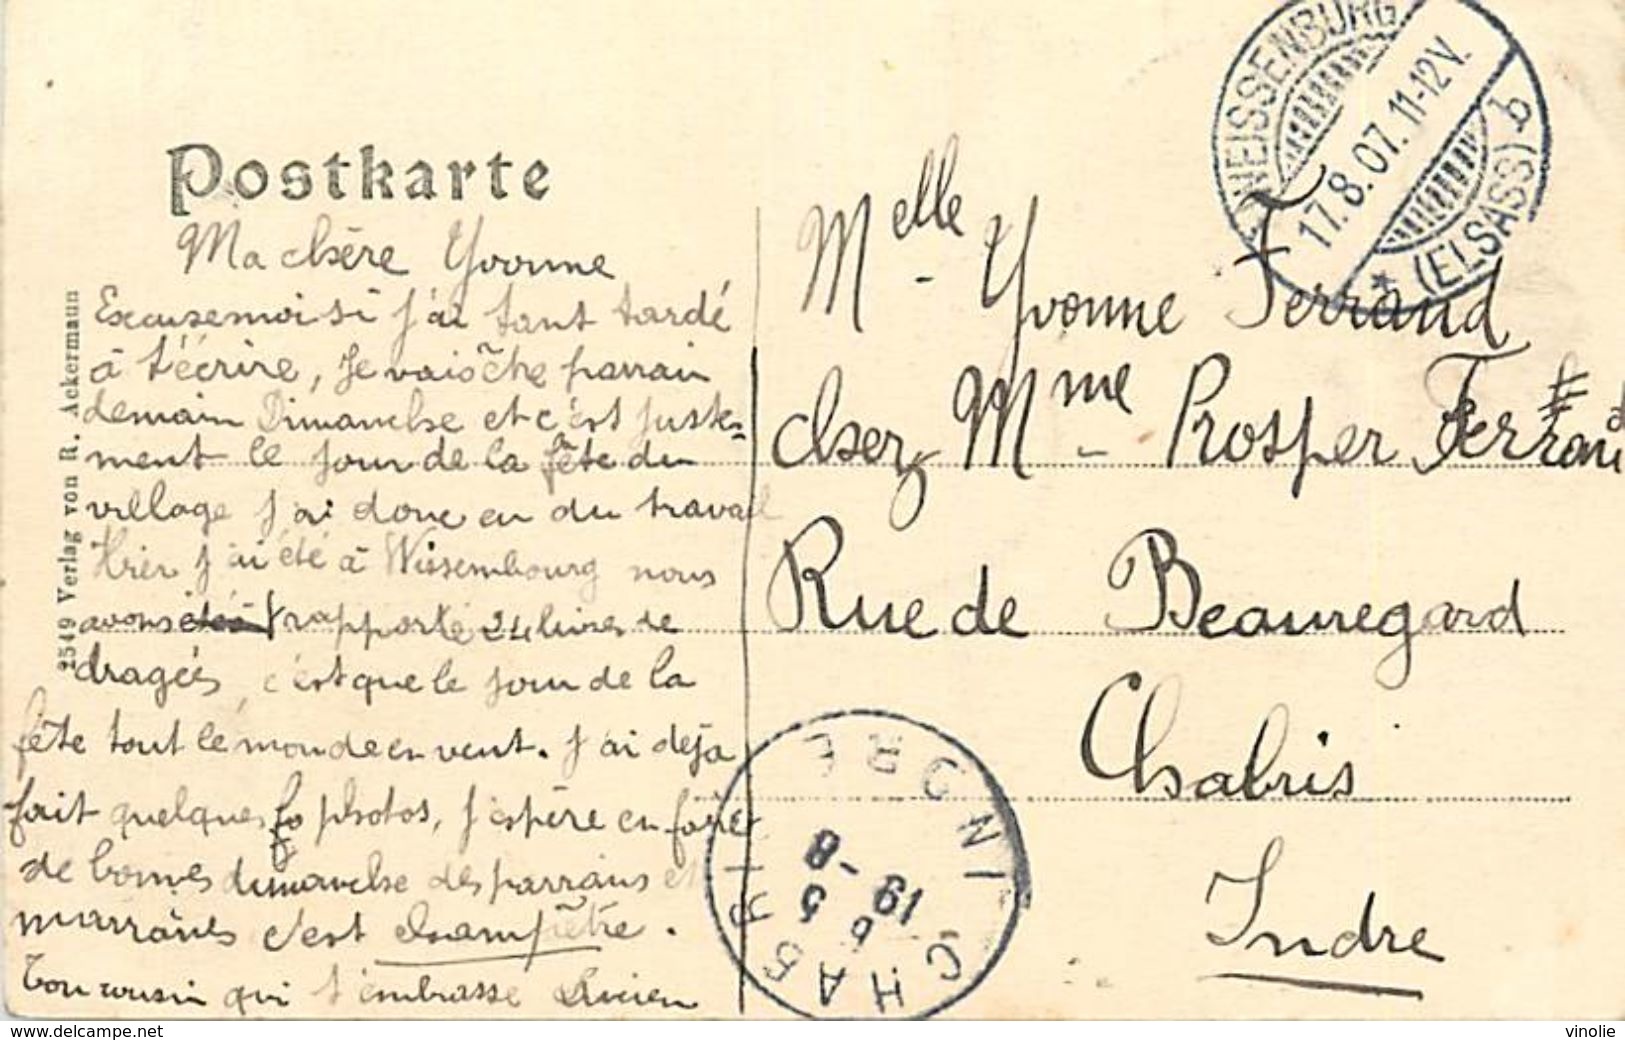 Postkarte
WEISSENBURG
17.8.07. 11-12V.
* (ELSASS) b
2549 Verlag von R. Ackermann
Ma chère Yvonne
Excuse moi si j'ai tant tardé
à t'écrire, je vais être parrain
demain Dimanche et c'est juste-
ment le jour de la fête du
village j'ai donc eu du travail
Hier j'ai été à Wissembourg nous
avons rapporté 24 livres de
dragées, c'est que le jour de la
fête tout le monde en veut. J'ai déjà
fait quelques photos, j'espère en faire
de bonnes dimanche des parrains et
marraines c'est champêtre.
Ton cousin qui t'embrasse Lucien
Melle Yvonne Ferrand
chez Mme Prosper Ferrand
Rue de Beauregard
Chabris
Indre
CHABRIS INDRE
19 -8
delcampe.net
vinolie